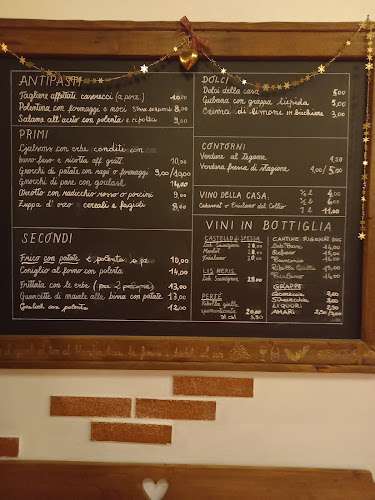 ANTIPASTI
Tagliere affettati caserecci (a pers.) 10,00
Polentina con formaggi e noci 8,00
Salame all'aceto con polenta e cipolla 9,00
PRIMI
Cjalsons con erbe conditi con
burro fuso e ricotta aff. gratt. 10,00
Gnocchi di patate con ragù o formaggi 9,00/10,00
Gnocchi di pane con goulash 14,00
Orzotto con radicchio rosso o porcini 9,00
Zuppa d'orzo e cereali e fagioli 8,00
SECONDI
Frico con patate e polenta 10,00
Coniglio al forno con polenta 14,00
Frittata con le erbe (per 2 persone) 13,00
Guancette di maiale alla birra con patate 13,00
Goulash con polenta 12,00
DOLCI
Dolci della casa 5,00
Gubana con grappa tiepida 5,00
Crema di limoni in bicchiere 3,00
CONTORNI
Verdure al tegame 4,50
Verdura fresca di stagione 4,00/5,00
VINO DELLA CASA
Cabernet o Friulano del Collio
1/4 l 4,00
1/2 l 6,00
1 l 11,00
VINI IN BOTTIGLIA
CASTELLO di SPESSA
Cab. Sauvignon
Merlot
Friulano
LIS NERIS
Cab. Sauvignon 28.00
Ribolla gialla
spumantizzata 20.00
CANTINE RIGONAT DOC
Cab. Franc 14,00
Refosco
Ribolla Gialla
Friulano
GRAPPE
LIQUORI
AMARI